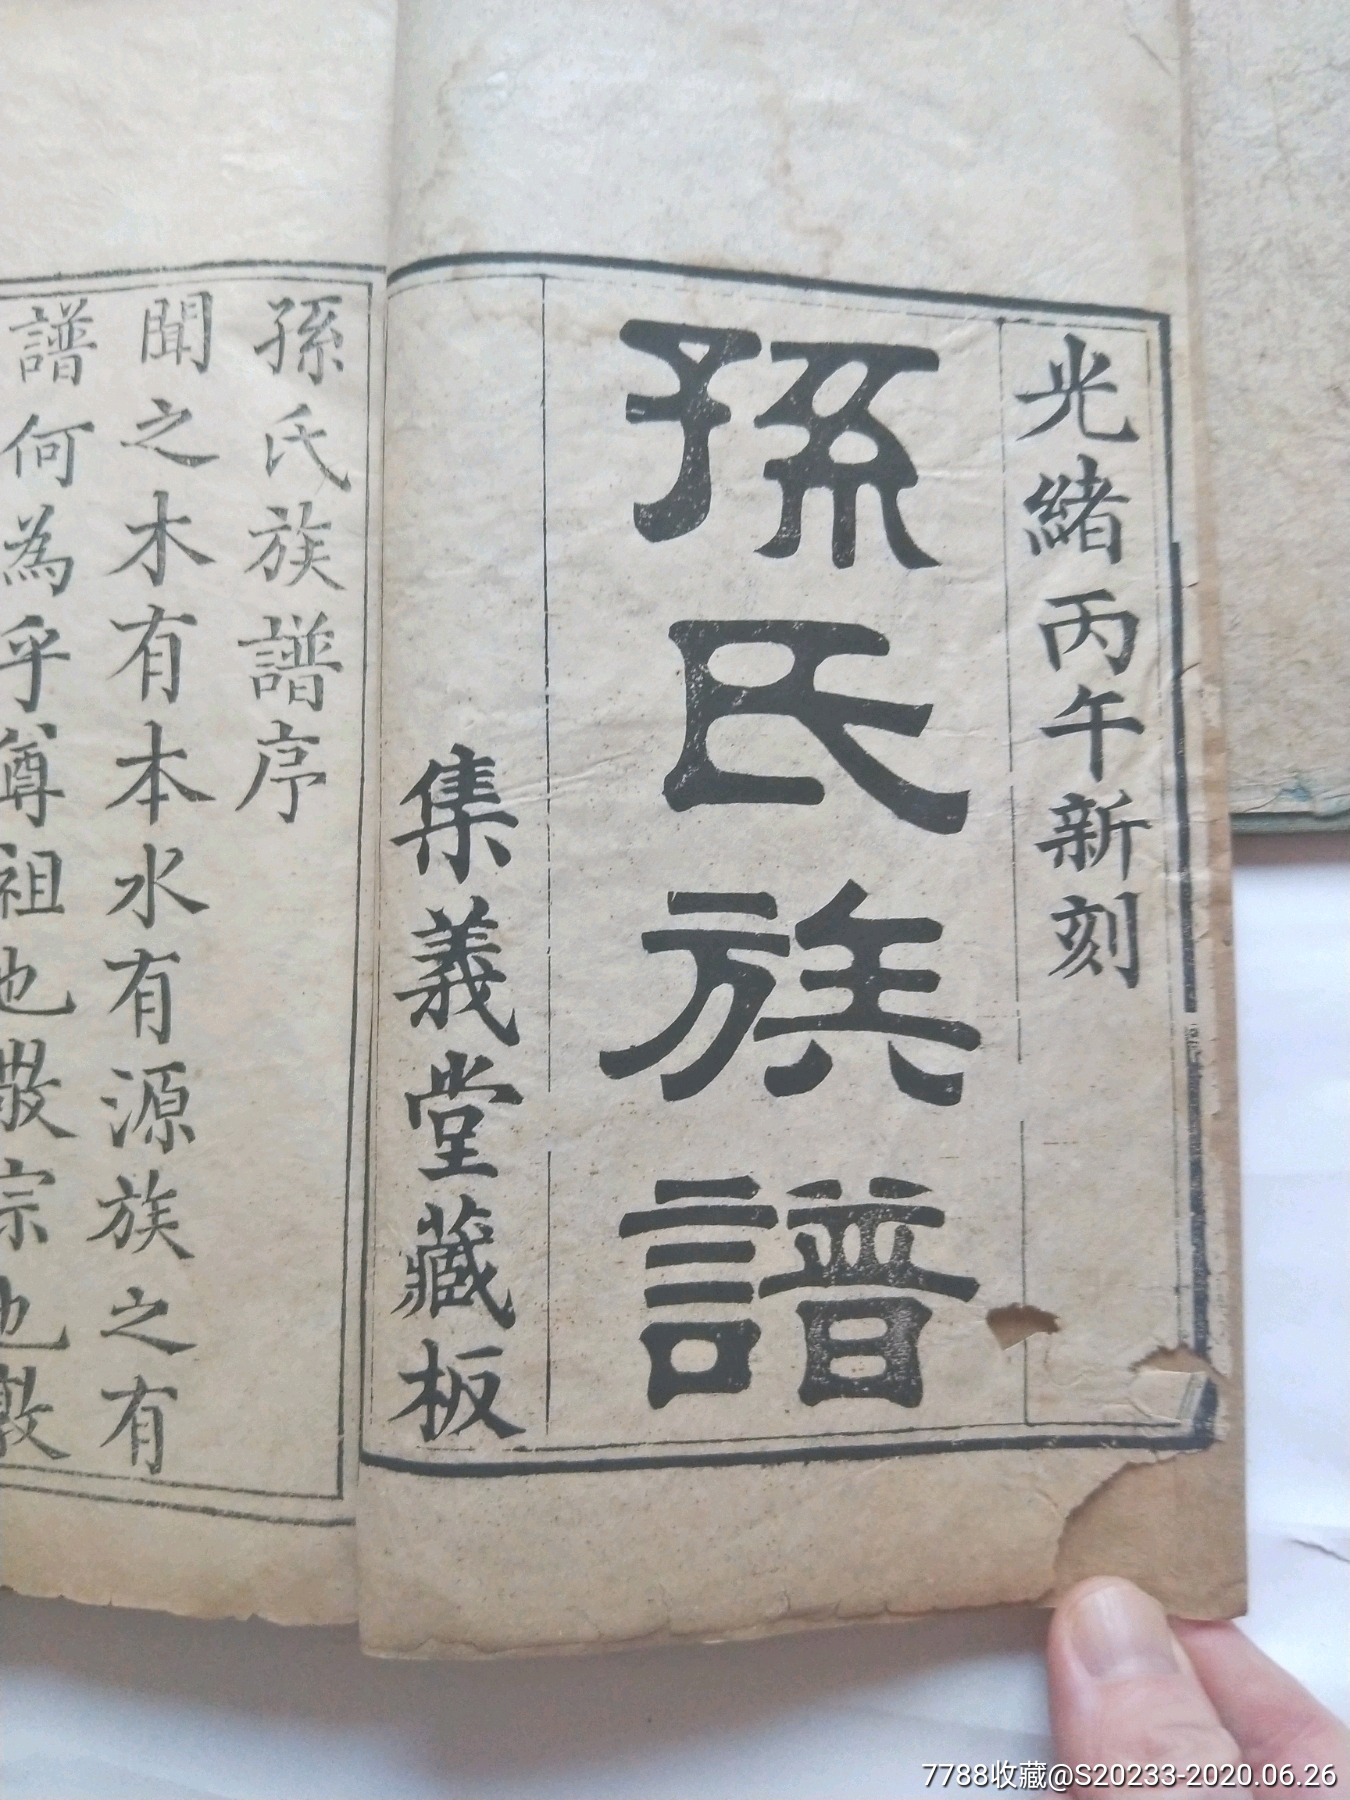 光緒丙午新刻
孫氏族譜
集義堂藏板
孫氏族譜序
聞之木有本水有源族之有
譜何為乎尊祖也敬宗也敦
7788收藏@S20233-2020.06.26